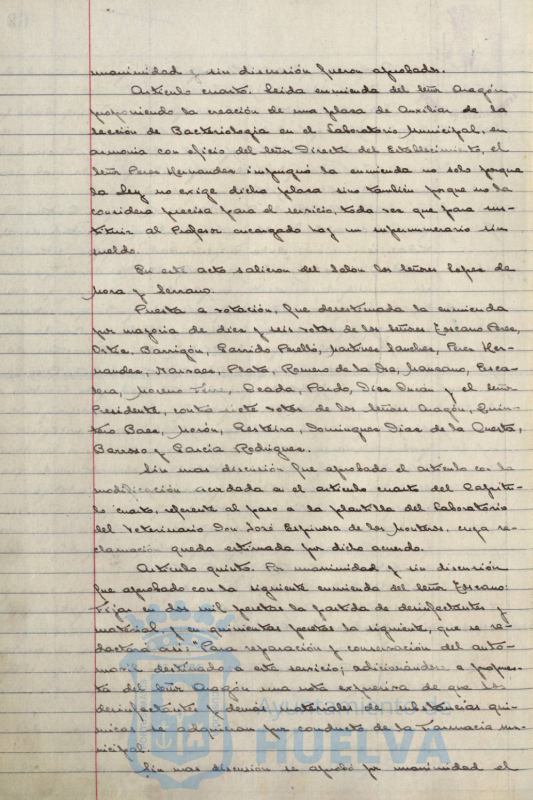 unanimidad y sin discusión fueron aprobados.
Artículo cuarto. Leida enmienda del Señor Aragón
proponiendo la creación de una plaza de Auxiliar de la
Sección de Bacteriologia en el Laboratorio Municipal, en
armonia con oficio del Señor Director del Establecimiento, el
Señor Perez Hernandez impugnó la enmienda no solo porque
la Ley no exige dicha plaza sino tambien porque no la
considera precisa para el servicio, toda vez que para sus-
tituir al Profesor encargado hay un supernumerario sin
sueldo.
En este acto salieron del Salón los Señores Lopez de
Mora y Serrano.
Puesta a votación, fue desestimada la enmienda
por mayoria de diez y seis votos de los Señores Toscano Perez,
Ortiz, Barrigón, Garrido Perelló, Martinez Sanchez, Perez Her-
nandez, Narvaez, Plata, Romero de la Osa, Manzano, Esca-
lera, Moreno, Ocada, Pardo, Diaz y el Señor
Presidente, contra siete votos de los Señores Aragón, Quin-
tero Baez, Morón, Terteira, Dominguez Diaz de la Cuesta,
Barroso y Garcia Rodriguez.
Sin mas discusión fue aprobado el artículo con la
modificación acordada en el artículo cuarto del Capítu-
lo cuarto, referente al paso a la plantilla del Laboratorio
del Veterinario Don José Espinosa de los Monteros, cuya re-
clamación queda estimada por dicho acuerdo.
Artículo quinto. Por unanimidad y sin discusión
fue aprobado con la siguiente enmienda del Señor Toscano:
Fijar en dos mil pesetas la partida de desinfectantes y
material y en quinientas pesetas la siguiente, que se re-
dactará asi: "Para reparación y conservación del auto-
movil destinado a este servicio; adicionándose a propues-
ta del Señor Aragón una nota expresiva de que los
desinfectantes y demás materiales de substancias qui-
micas se adquieran por conducto de la Farmacia mu-
nicipal.
Sin mas discusión se aprobó por unanimidad el
Ayuntamiento de
HUELVA